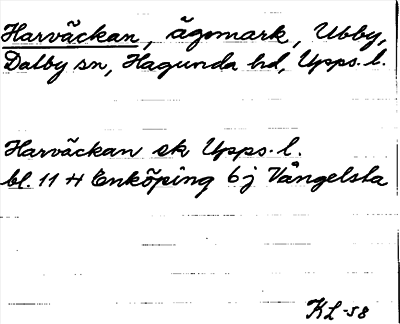 Harväckan, ägomark, Ubby,
Dalby sn, Hagunda hd, Upps. l.
Harväckan ek Upps. l.
bl. 11 H Enköping 6j Vångelsta
KL -58